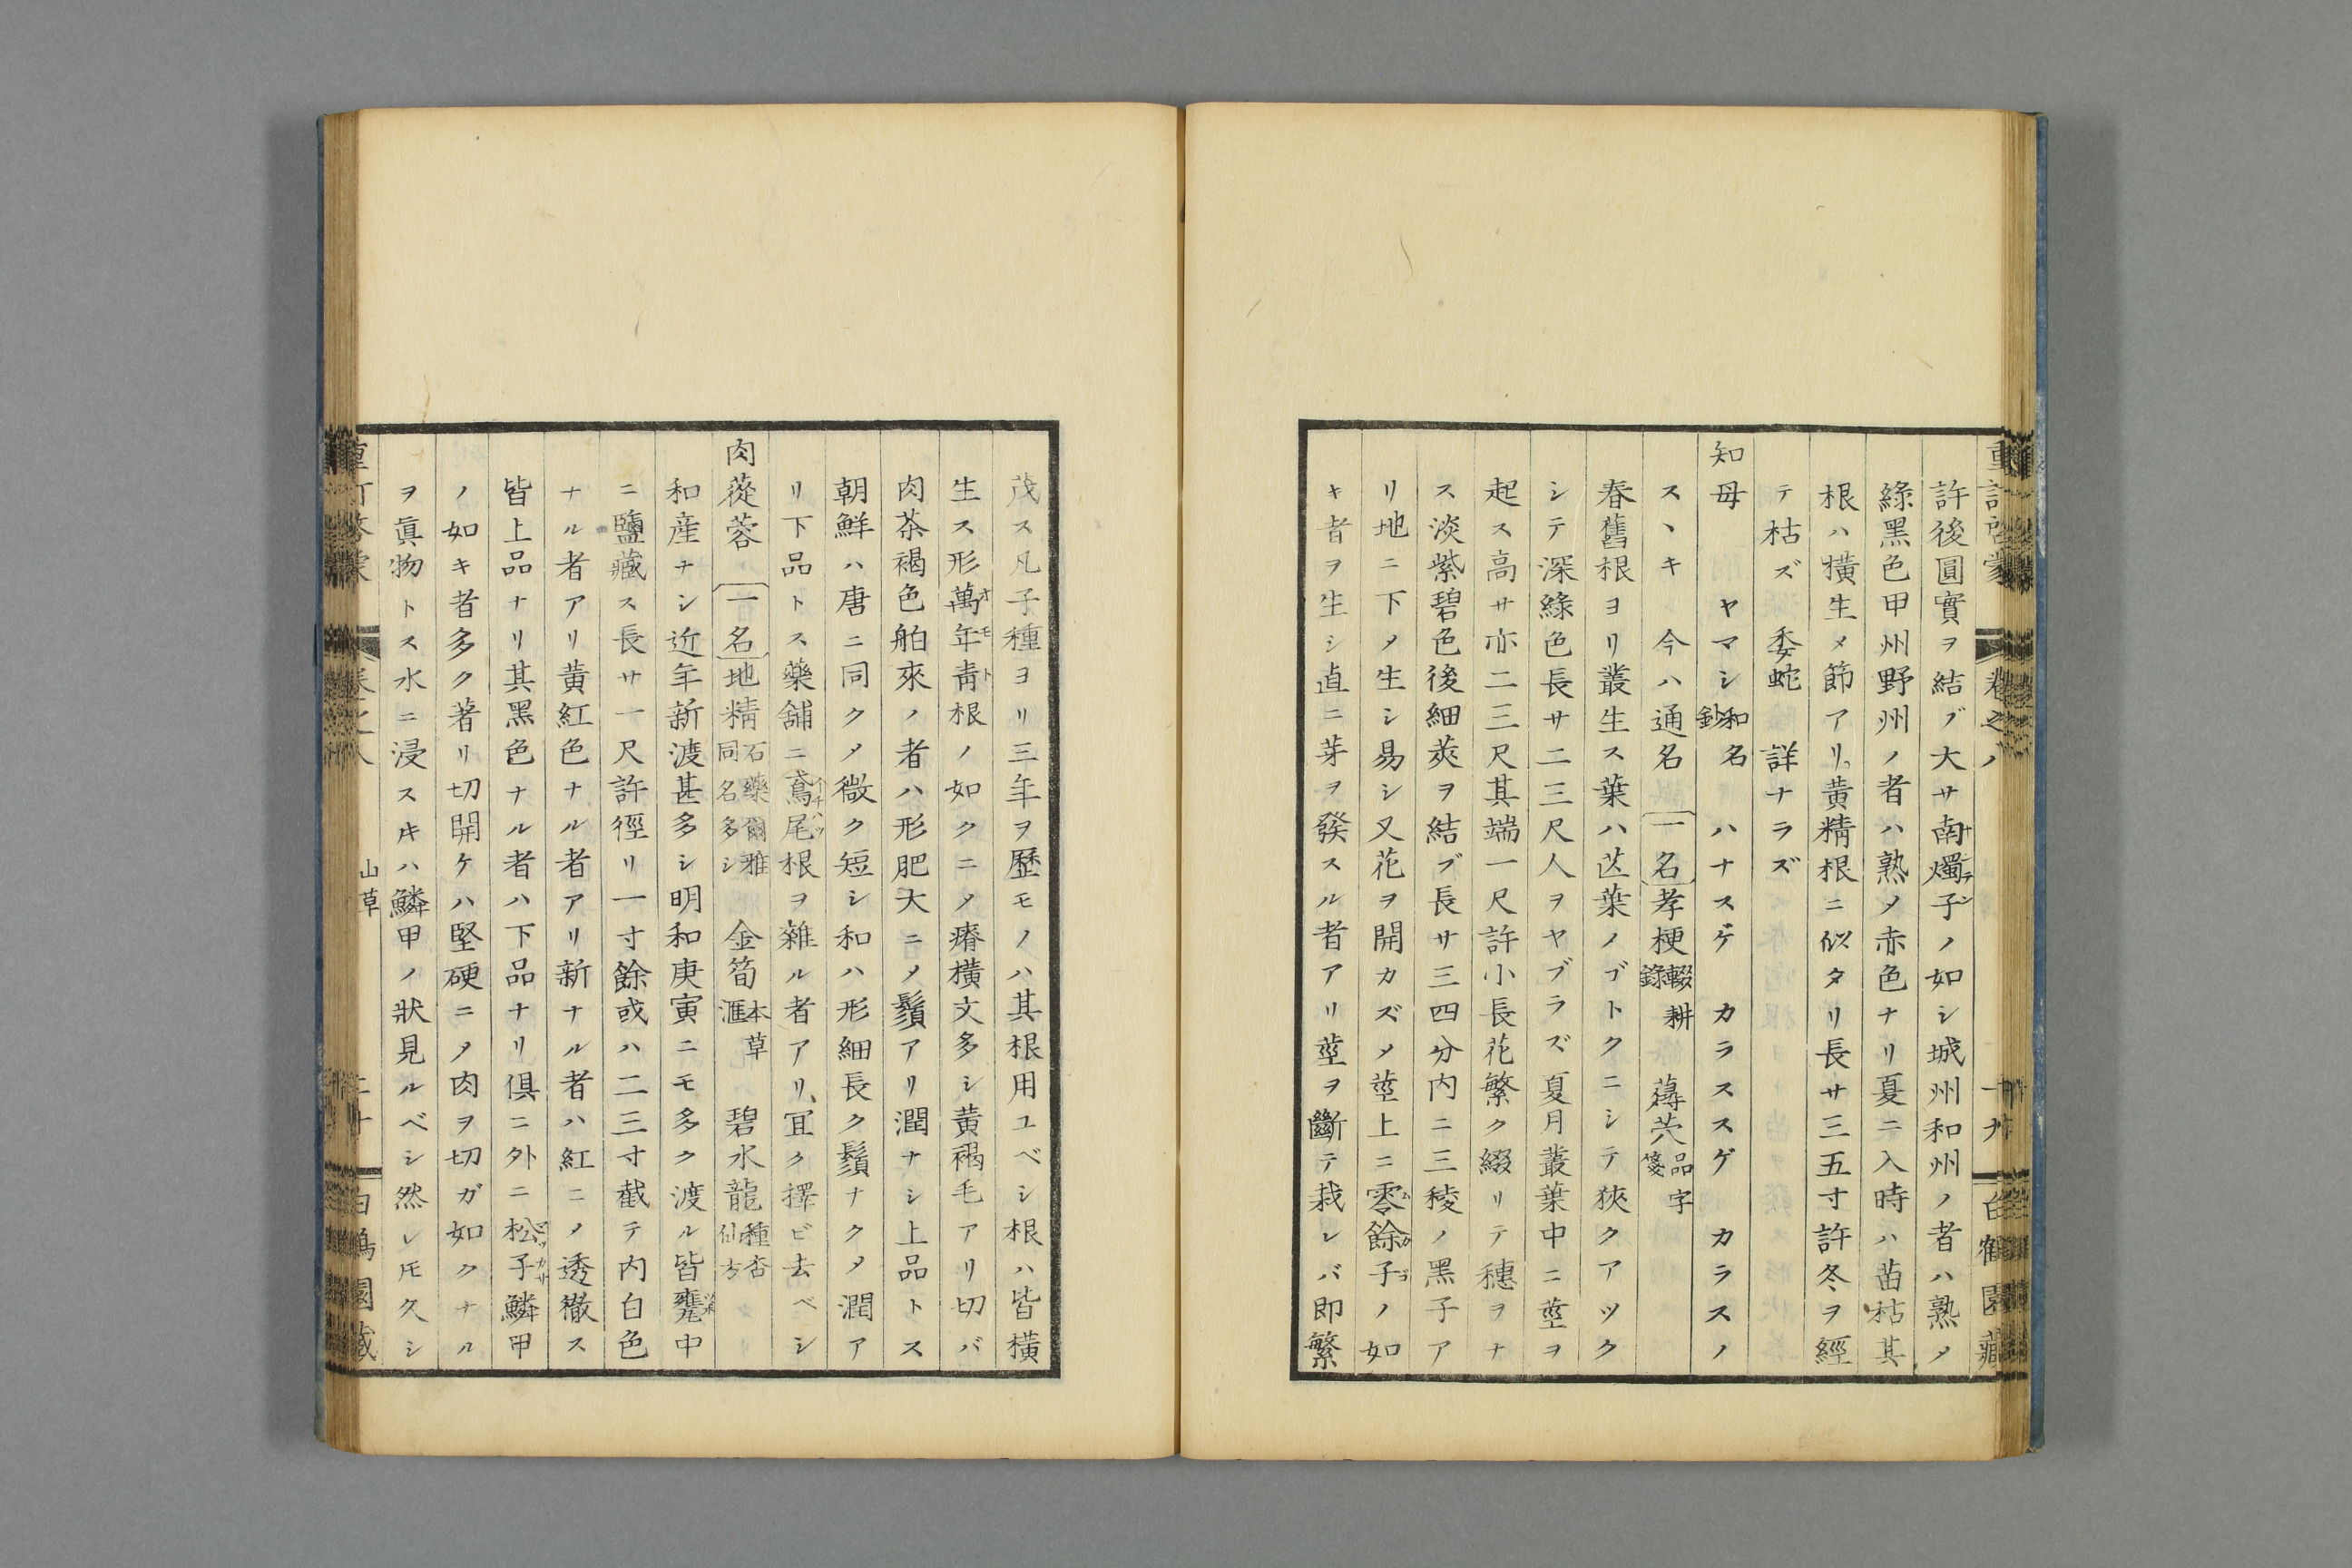 許後圓實ヲ結ブ大サ南燭子ノ如シ城州和州ノ者ハ熟メ
綠黑色甲州野州ノ者ハ熟メ赤色ナリ夏ニ入時ハ苗枯其
根ハ橫生メ節アリ黄精根ニ似タリ長サ三五寸許冬ヲ經
テ枯ズ 委蛇 詳ナラズ
知母 ヤマシ和名鈔 ハナスゲ カラススゲ カラスノ
スヽキ 今ハ通名 一名 孝梗輟耕錄 蕁䓖品字箋
春舊根ヨリ叢生ス葉ハ苙葉ノゴトクニシテ狹クアツク
シテ深綠色長サ二三尺人ヲヤブラズ夏月叢葉中ニ莖ヲ
起ス高サ亦二三尺其端一尺許小長花繁ク綴リテ穗ヲナ
ス淡紫碧色後細莢ヲ結ブ長サ三四分内ニ三稜ノ黑子ア
リ地ニ下メ生シ易シ又花ヲ開カズメ莖上ニ零餘子ノ如
キ者ヲ生シ直ニ芽ヲ發スル者アリ莖ヲ斷テ栽レバ即繁
茂ス凡子種ヨリ三年ヲ歷モノハ其根用ユベシ根ハ皆橫
生ス形萬年靑根ノ如クニメ瘠橫文多シ黄褐毛アリ切バ
肉茶褐色舶來ノ者ハ形肥大ニメ鬚アリ潤ナシ上品トス
朝鮮ハ唐ニ同クメ微ク短シ和ハ形細長ク鬚ナクメ潤ア
リ下品トス藥舖ニ鳶尾根ヲ雜ル者アリ冝ク擇ビ去ベシ
肉蓯蓉 一名 地精石藥爾雅同名多シ 金筍本草滙 碧水龍種杏仙方
和産ナシ近年新渡甚多シ明和庚寅ニモ多ク渡ル皆甕中
ニ鹽藏ス長サ一尺許徑リ一寸餘或ハ二三寸截テ内白色
ナル者アリ黄紅色ナル者アリ新ナル者ハ紅ニメ透徹ス
皆上品ナリ其黑色ナル者ハ下品ナリ俱ニ外ニ松子鱗甲
ノ如キ者多ク著リ切開ケハ堅硬ニメ肉ヲ切ガ如クナル
ヲ眞物トス水ニ浸スキハ鱗甲ノ狀見ルベシ然レ𪜈久シ
山草